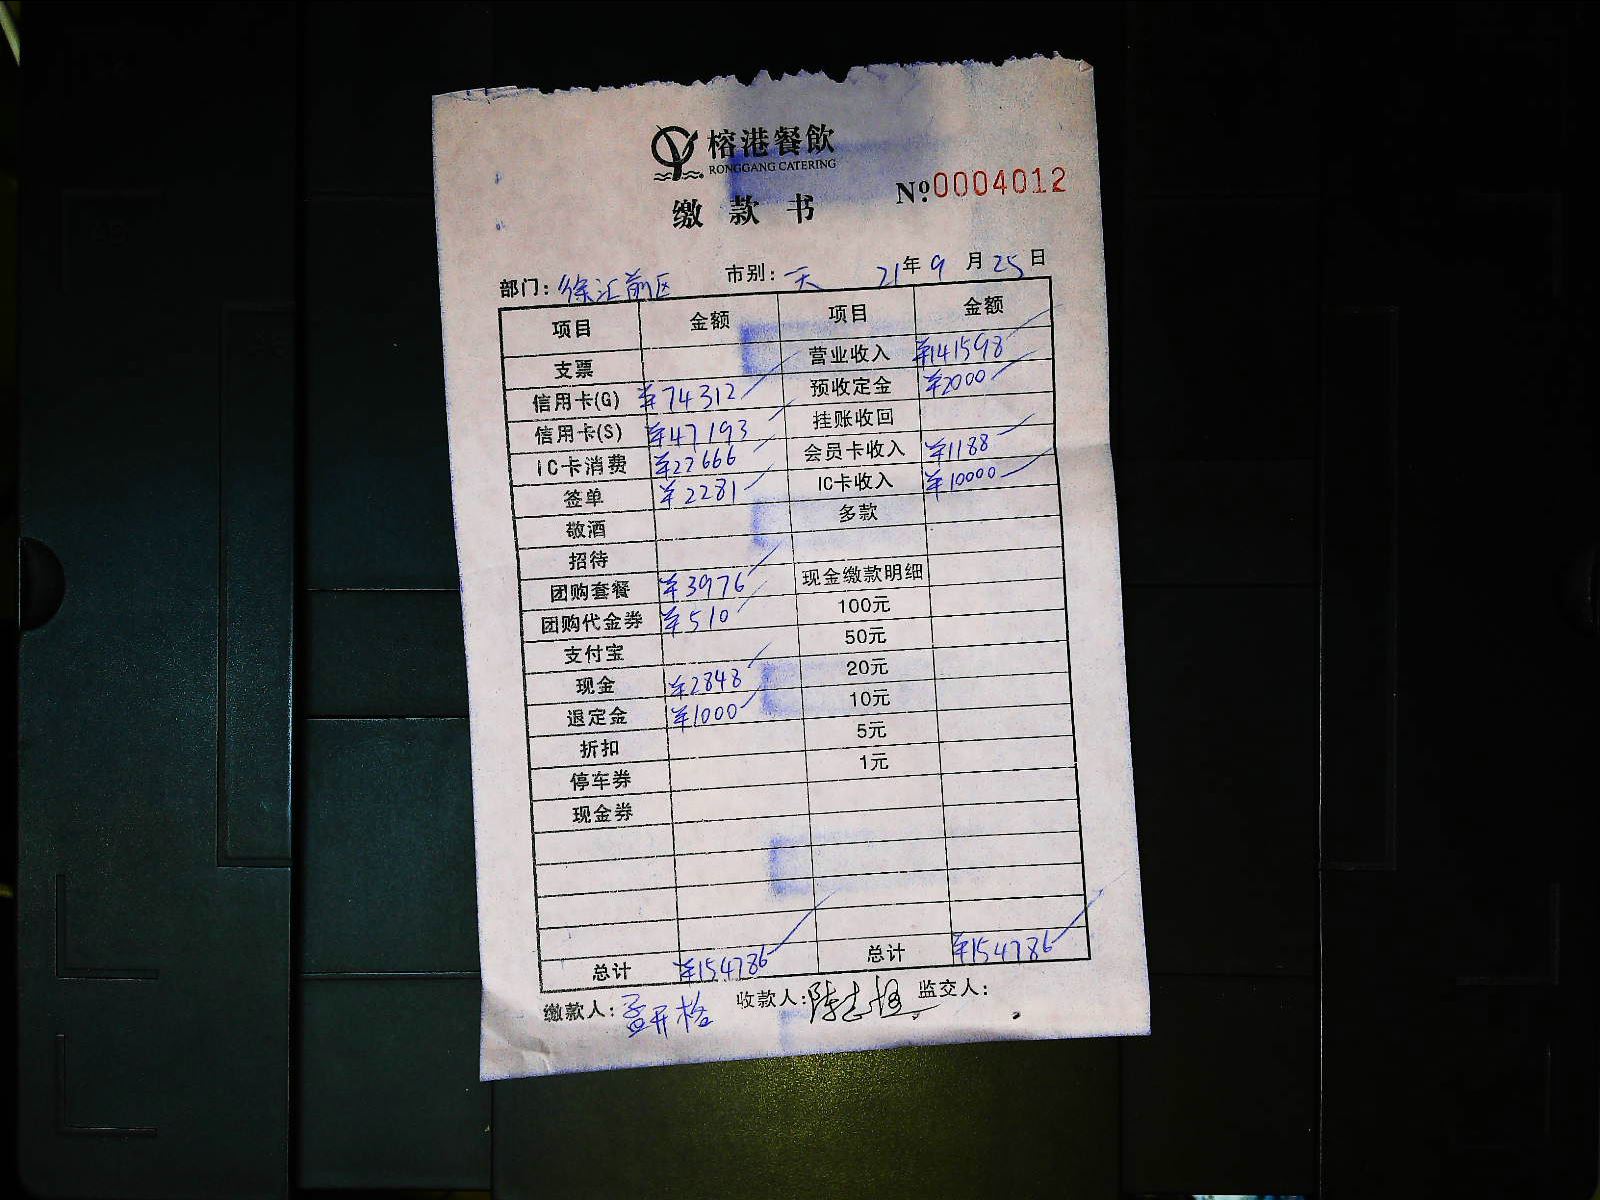 榕港餐飲
RONGGANG CATERING
缴款书 №0004012
部门: 徐汇前区 市别: 一天 21年9月25日
项目 金额 项目 金额
支票 营业收入 ¥141598
信用卡(G) ¥74312 预收定金 ¥2000
信用卡(S) ¥47193 挂账收回
IC卡消费 ¥22666 会员卡收入 ¥1188
签单 ¥2281 IC卡收入 ¥10000
敬酒 多款
招待
团购套餐 ¥3976 现金缴款明细
团购代金券 ¥510 100元
支付宝 50元
现金 ¥2848 20元
退定金 ¥1000 10元
折扣 5元
停车券 1元
现金券
总计 ¥154786 总计 ¥154786
缴款人: 孟开格 收款人: 陈志 监交人: